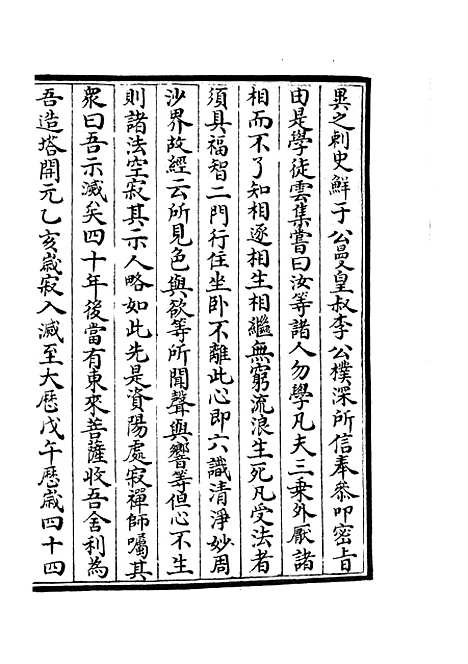 異之刺史鮮于公㬰皇叔李公樸深所信奉叅叩密旨
由是學徒雲集嘗曰汝等諸人勿學凡夫三乗外厭諸
相而不了知相逐相生相繼無窮流浪生死凡受法者
須具福智二門行住坐卧不離此心即六識清淨妙周
沙界故經云所見色與欲等所聞聲與響等但心不生
則諸法空寂其示人略如此先是資陽處寂禪師囑其
衆曰吾示滅矣四十年後當有東來菩薩收吾舍利為
吾造塔開元乙亥歲寂入滅至大歷戊午歷歲四十四